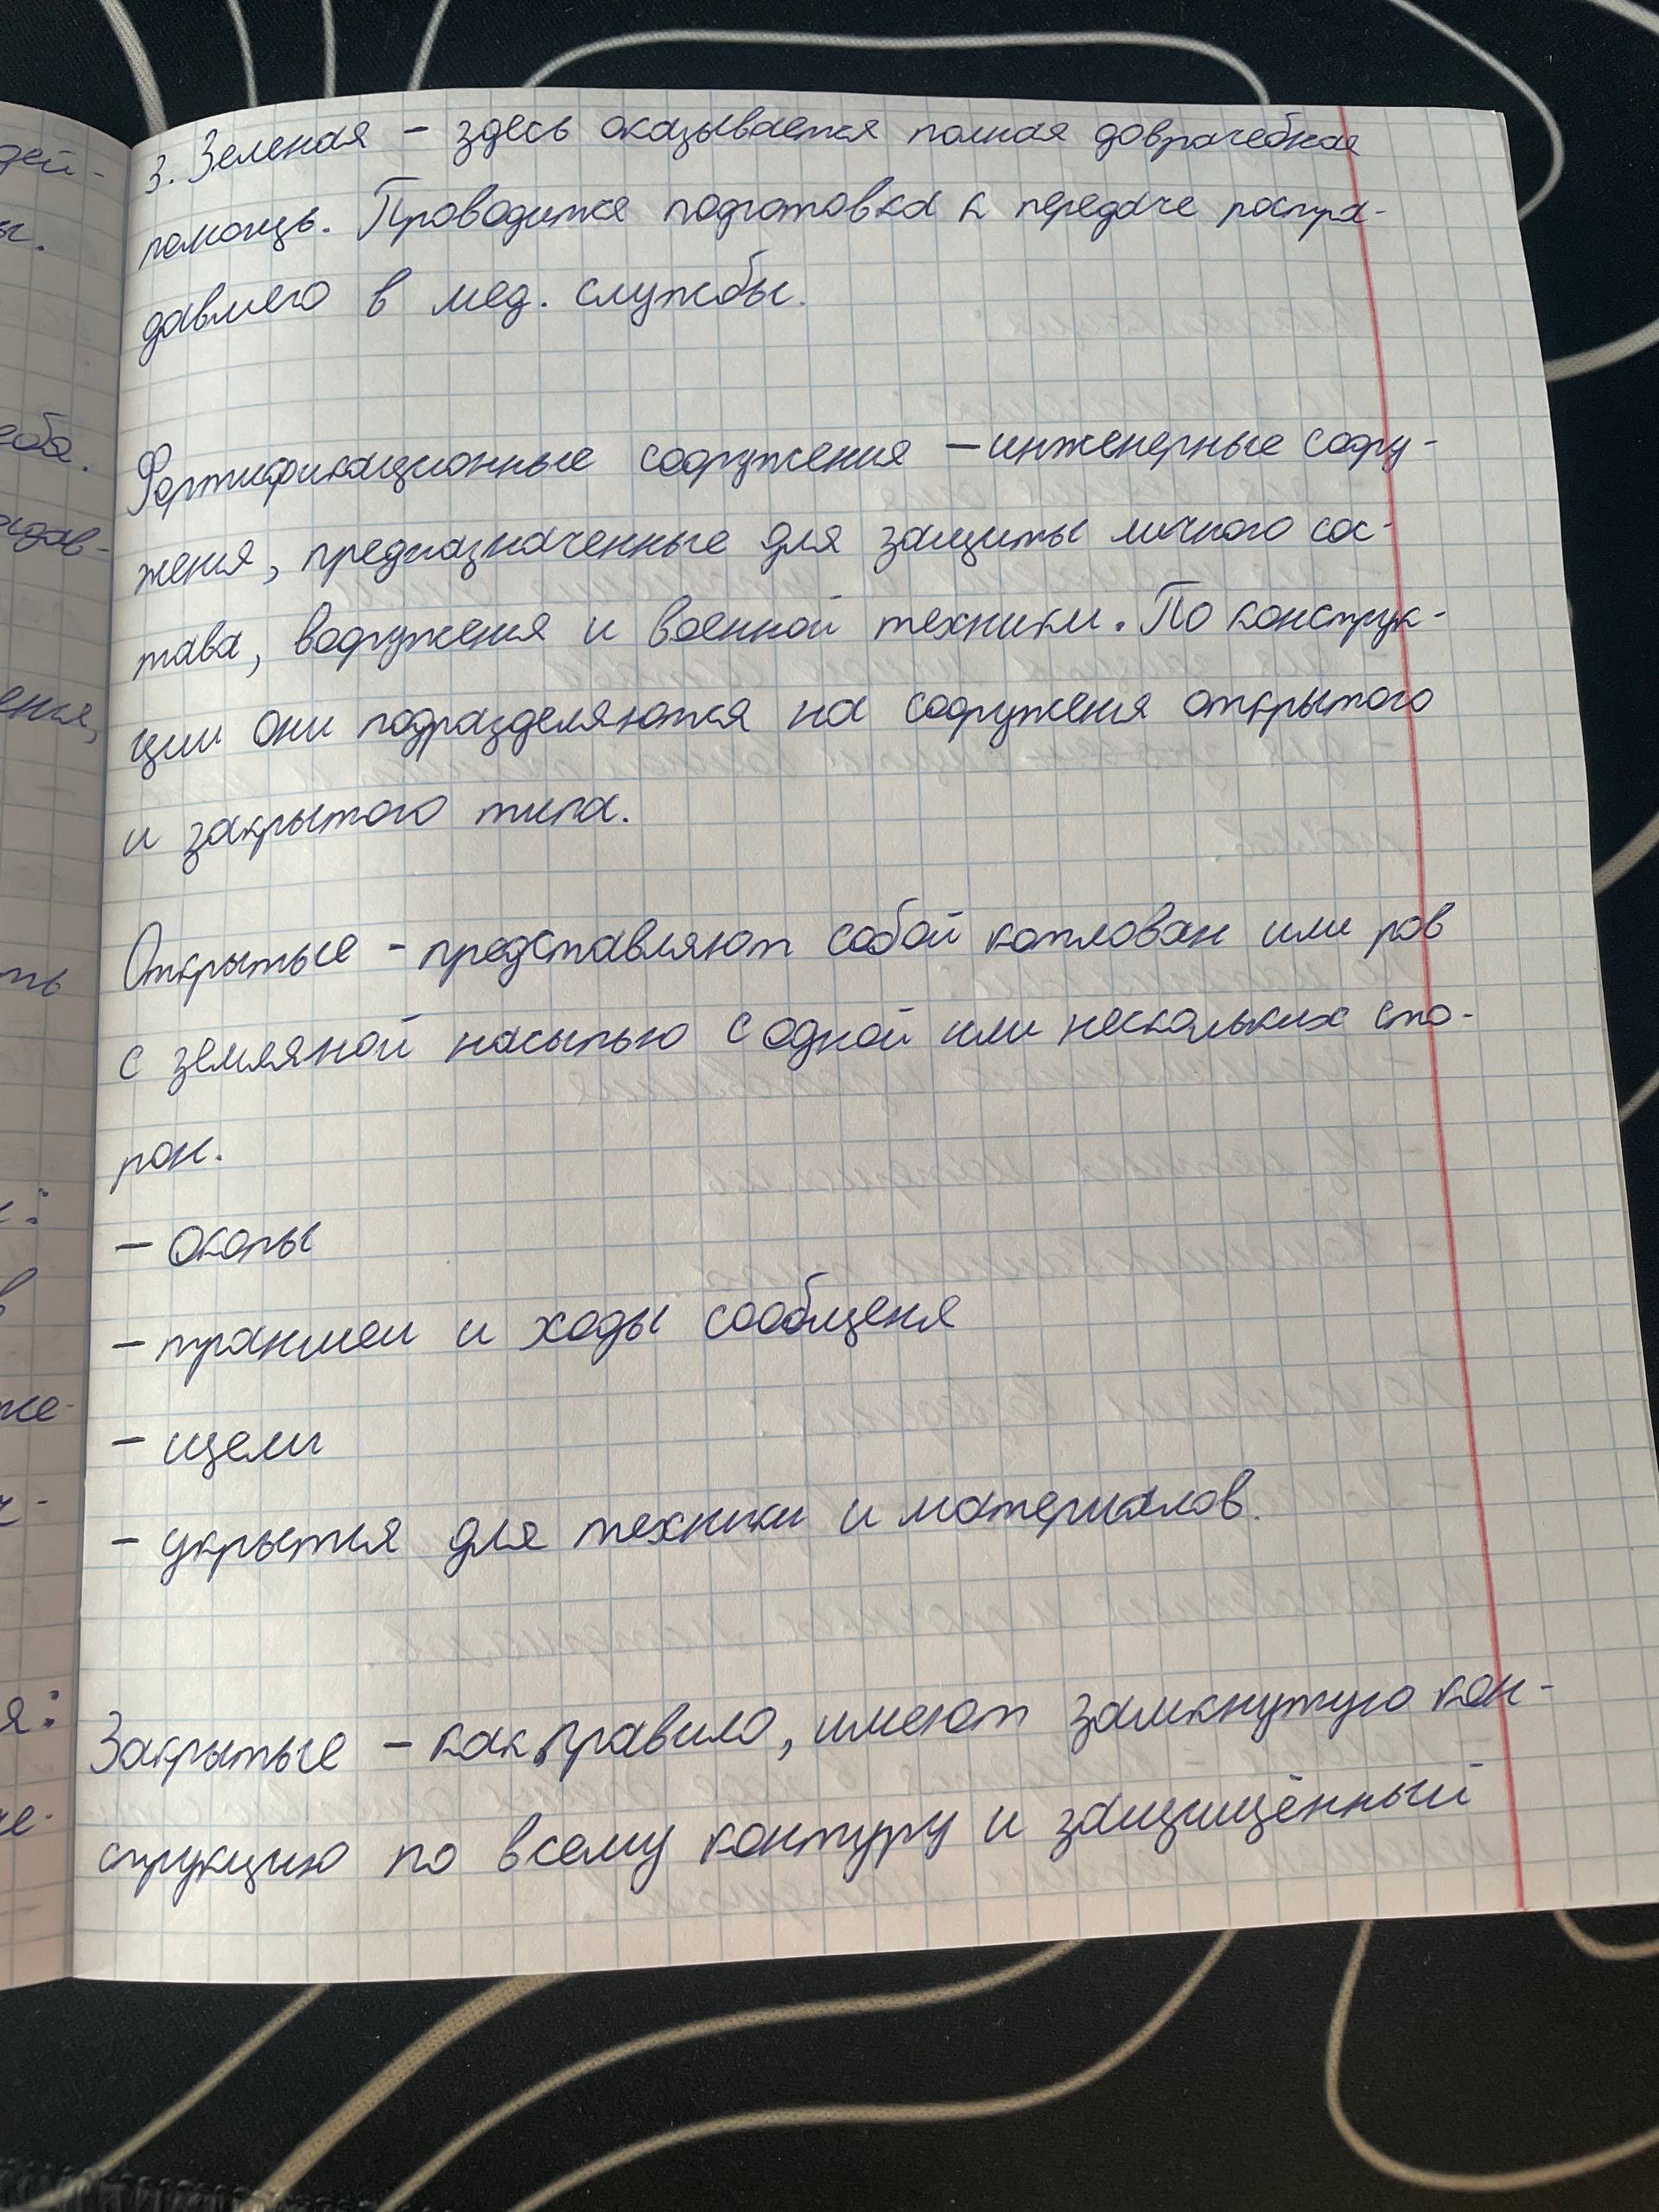 3. Зеленая - здесь оказывается полная доврачебная
помощь. Проводится подготовка к передаче постра-
давшего в мед. службы.
Фортификационные сооружения - инженерные соору-
жения, предназначенные для защиты личного сос-
тава, вооружения и военной техники. По конструк-
ции они подразделяются на сооружения открытого
и закрытого типа.
Открытые - представляют собой котлован или ров
с земляной насыпью с одной или нескольких сто-
рон.
- окопы
- траншеи и ходы сообщеня
- щели
- укрытия для техники и материалов.
Закрытые - как правило, имеют замкнутую кон-
струкцию по всему контуру и защищённый